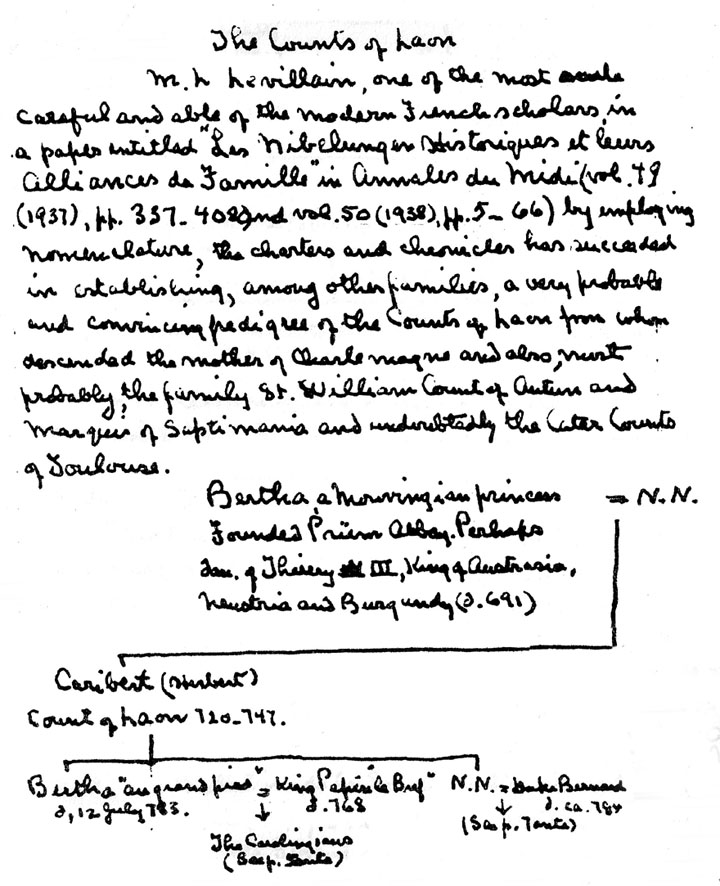 The Counts of Laon
M. L. Levillain, one of the most
careful and able of the modern French scholars, in
a paper entitled "Les Nibelungen Historiques et leurs
Alliances de Famille" in Annales du Midi (vol. 49
(1937), pp. 337-408) and vol. 50 (1938), pp. 5-66) by employing
nomenclature, the charters and chronicles has succeeded
in establishing, among other families, a very probable
and convincing pedigree of the Counts of Laon from whom
descended the mother of Charlemagne and also, most
probably, the family St. William Count of Autun and
Marquis of Septimania and undoubtedly the later Counts
of Toulouse.
Bertha, a Merovingian princess = N.N.
Founded Prüm Abbey. Perhaps
dau. of Thierry III, King of Austrasia,
Neustria and Burgundy (d. 691)
Caribert (Herbert)
Count of Laon 720-747.
Bertha "au grand pied" = King Pepin "le Bref" N.N. = Duke Bernard
d. 12 July 783. d. 768 d. ca. 784
The Carolingians (See p.
(See p.